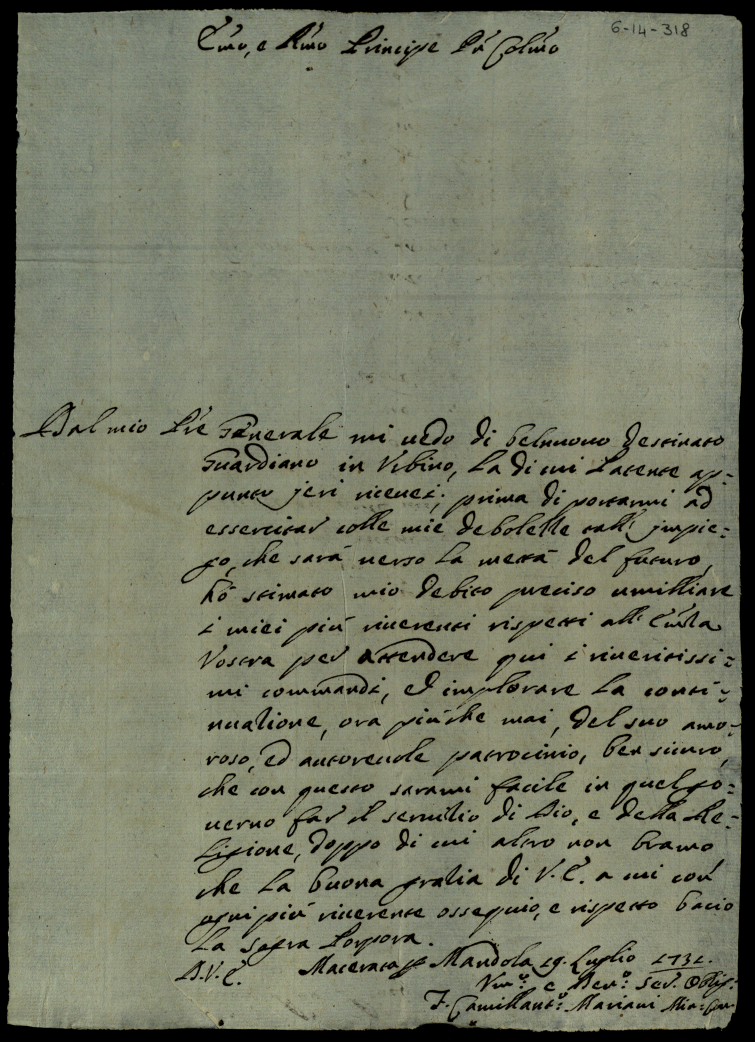 6-14-318
Em̃o, e Rm̃o Principe Pr̃ Colm̃o
Dal mio Pr̃e Generale mi uedo di belnuouo destinato
Guardiano in Vrbino, La di cui Patente ap-
punto jeri riceuei; prima di portarmi ad
essercitar colle mie debolezze tall' impie-
go, che sarà uerso la mettà del futuro,
hò stimato mio debito preciso umilliare
i miei più riuerenti rispetti all' Em̃za
Vostra per attendere qui i riueritissi-
mi commandi, ed implorare la conti-
nuatione, ora più che mai, del suo amo-
roso, ed autoreuole patrocinio, ben sicuro,
che con questo sarami facile in quel go-
uerno far il seruitio di Dio, e della Re-
ligione, doppo di cui altro non bramo,
che la buona gratia di V. E. a cui con
ogni più riuerente ossequio, e rispetto bacio
La Sagra Porpora.
D. V. E. Macerata p Mandola 19. Luglio 1731.
Vm̃o: e Deu.o: Ser. Oblig:
F. Camillant.o: Mariani Min: Con: